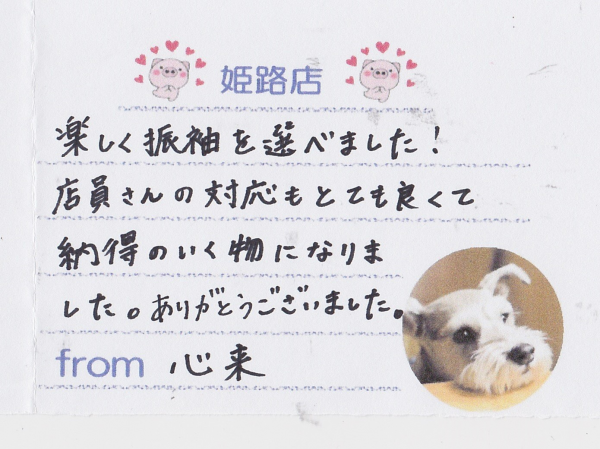 姫路店
楽しく振袖を選べました!
店員さんの対応もとても良くて
納得のいく物になりま
した。ありがとうございました。
from 心来